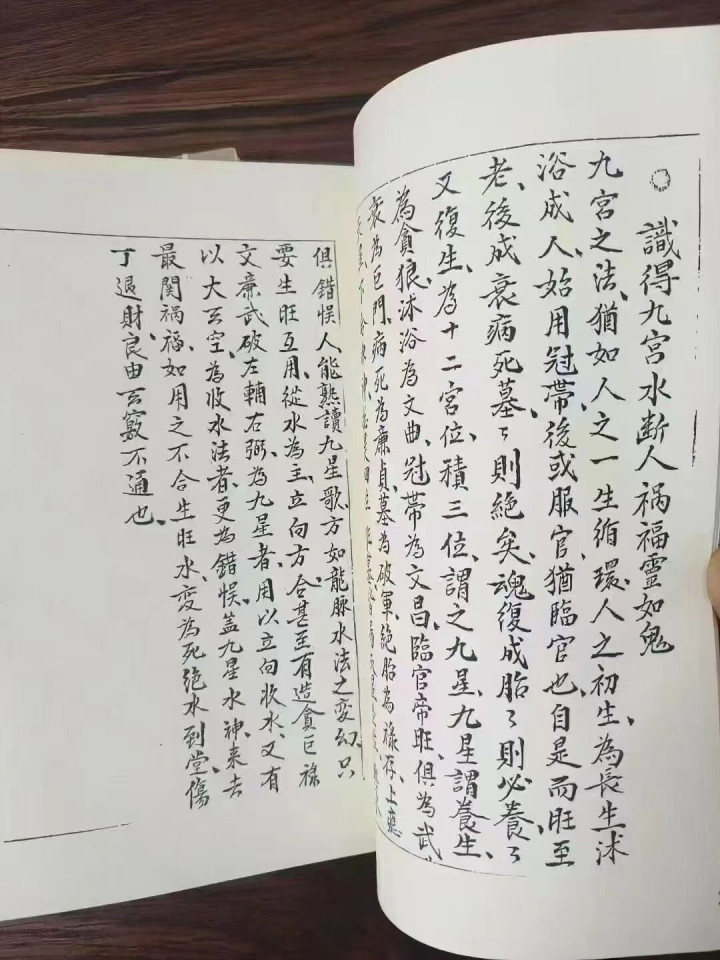 識得九宫水断人祸福靈如鬼
九宫之法、猶如人之一生循環、人之初生、為長生沭
浴成人、始用冠帶、後或服官、猶臨官也、自是而旺至
老、後成衰病死墓、々則絶矣、魂復成胎、々則必養、々
又復生、為十二宫位、積三位、謂之九星、九星謂養生、
為貪狼、沭浴為文曲、冠帶為文昌、臨官帝旺、俱為武、
衰為巨門、病死為廉貞、墓為破軍、絶胎為禄存、上應
俱錯悞人能熟讀九星歌、方如龍脉水法之变幻、只
要生旺互用、從水為主、立向方合甚至有造貪巨禄
文廉武破左輔右弼、為九星者、用以立向收水、又有
以大玄空、為收水法者、更為錯悞、蓋九星水神来去
最関祸福、如用之不合生旺水、变為死絶水到堂、傷
丁退財、良由玄竅不通也、